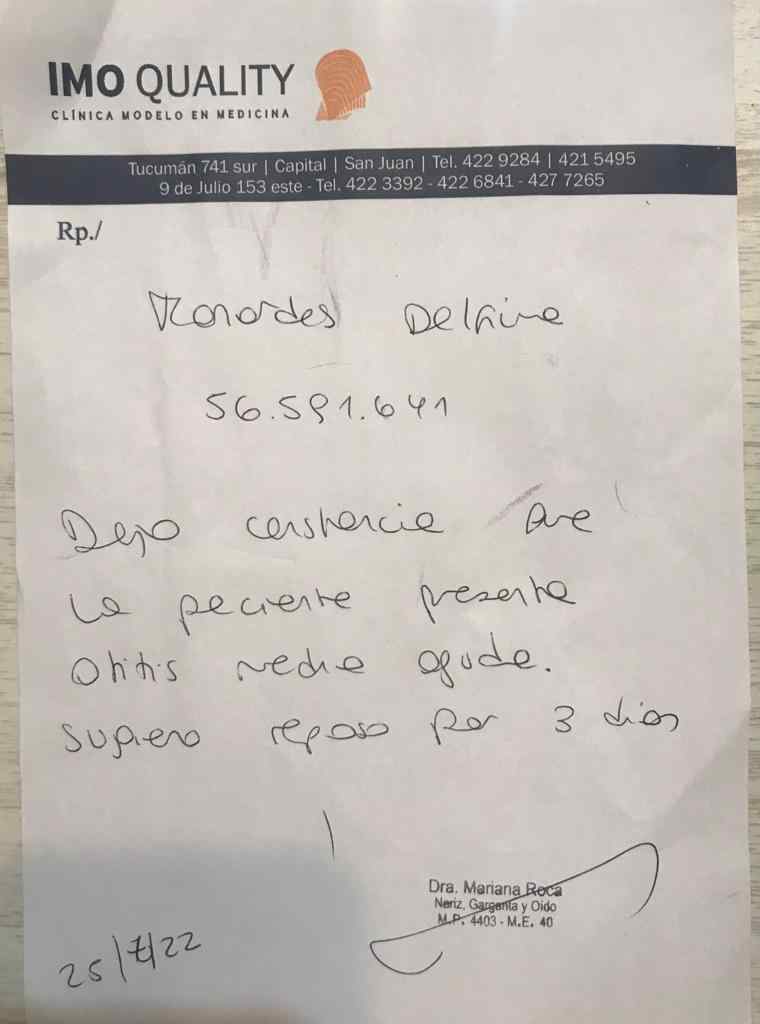 IMO QUALITY
CLÍNICA MODELO EN MEDICINA
Tucumán 741 sur | Capital | San Juan | Tel. 422 9284 | 421 5495
9 de Julio 153 este - Tel. 422 3392 - 422 6841 - 427 7265
Rp./
Delfina
56.591.641
Dejo constancia que
la paciente presenta
Otitis media aguda.
Sugiero reposo por 3 dias
Dra. Mariana Roca
Nariz, Garganta y Oido
M.P. 4403 - M.E. 40
25/7/22